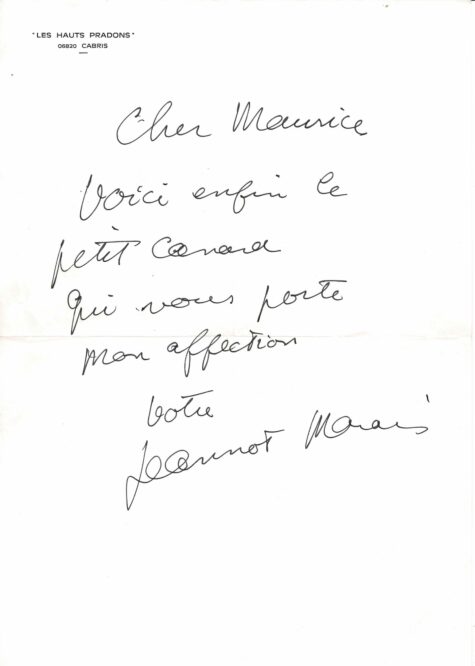 "LES HAUTS PRADONS"
06820 CABRIS
Cher Maurice
Voici enfin le
petit canard
qui vous porte
mon affection
Votre
Jeannot Marais